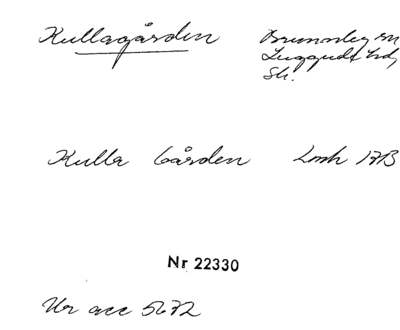 Kullagården Brunnby sn
Luggude hd,
Sk.
Kulla Gården Lmk 1713
Nr 22330
Ur acc 5672